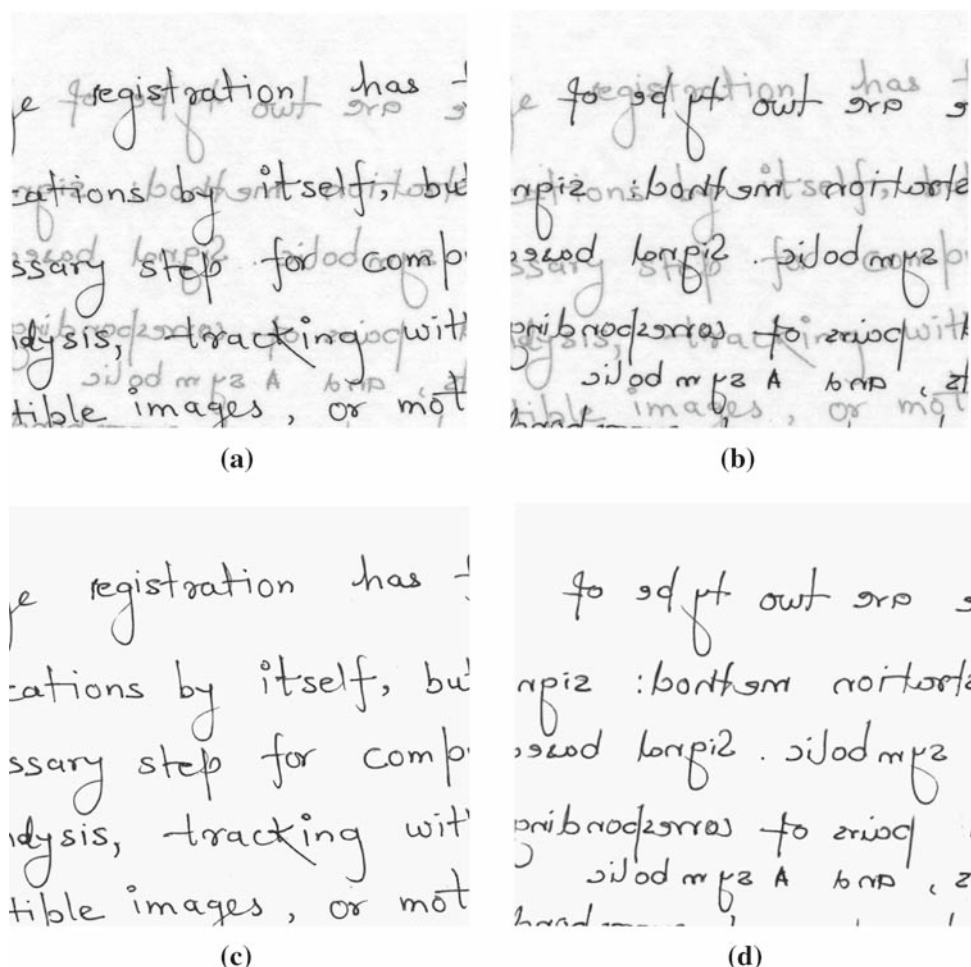 registration has
cations by itself, but
ssary step for comp
alysis, tracking with
tible images, or mot
(a)
are two ty pe of
method: sign
symbolic. Signal base
pairs of corresponding
and A sym bolic
(b)
registration has
cations by itself, bu
ssary step for comp
lysis, tracking wit
tible images, or mot
(c)
are two ty pe of
method: sign
symbolic. Signal base
pairs of corresponding
s, and A sym bolic
(d)